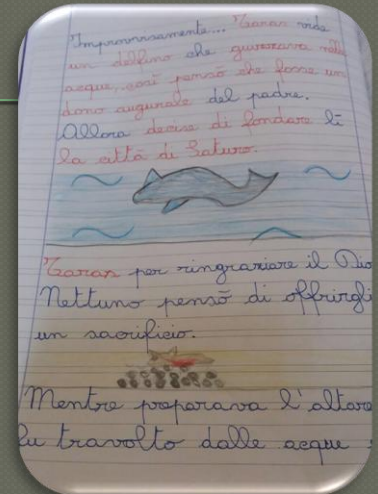 Improvvisamente... Taras vide
un delfino che guizzava nelle
acque, così pensò che fosse un
dono augurale del padre.
Allora decise di fondare lì
la città di Saturo.
Taras per ringraziare il Dio
Nettuno pensò di offrirgli
un sacrificio.
Mentre preparava l'altare
fu travolto dalle acque